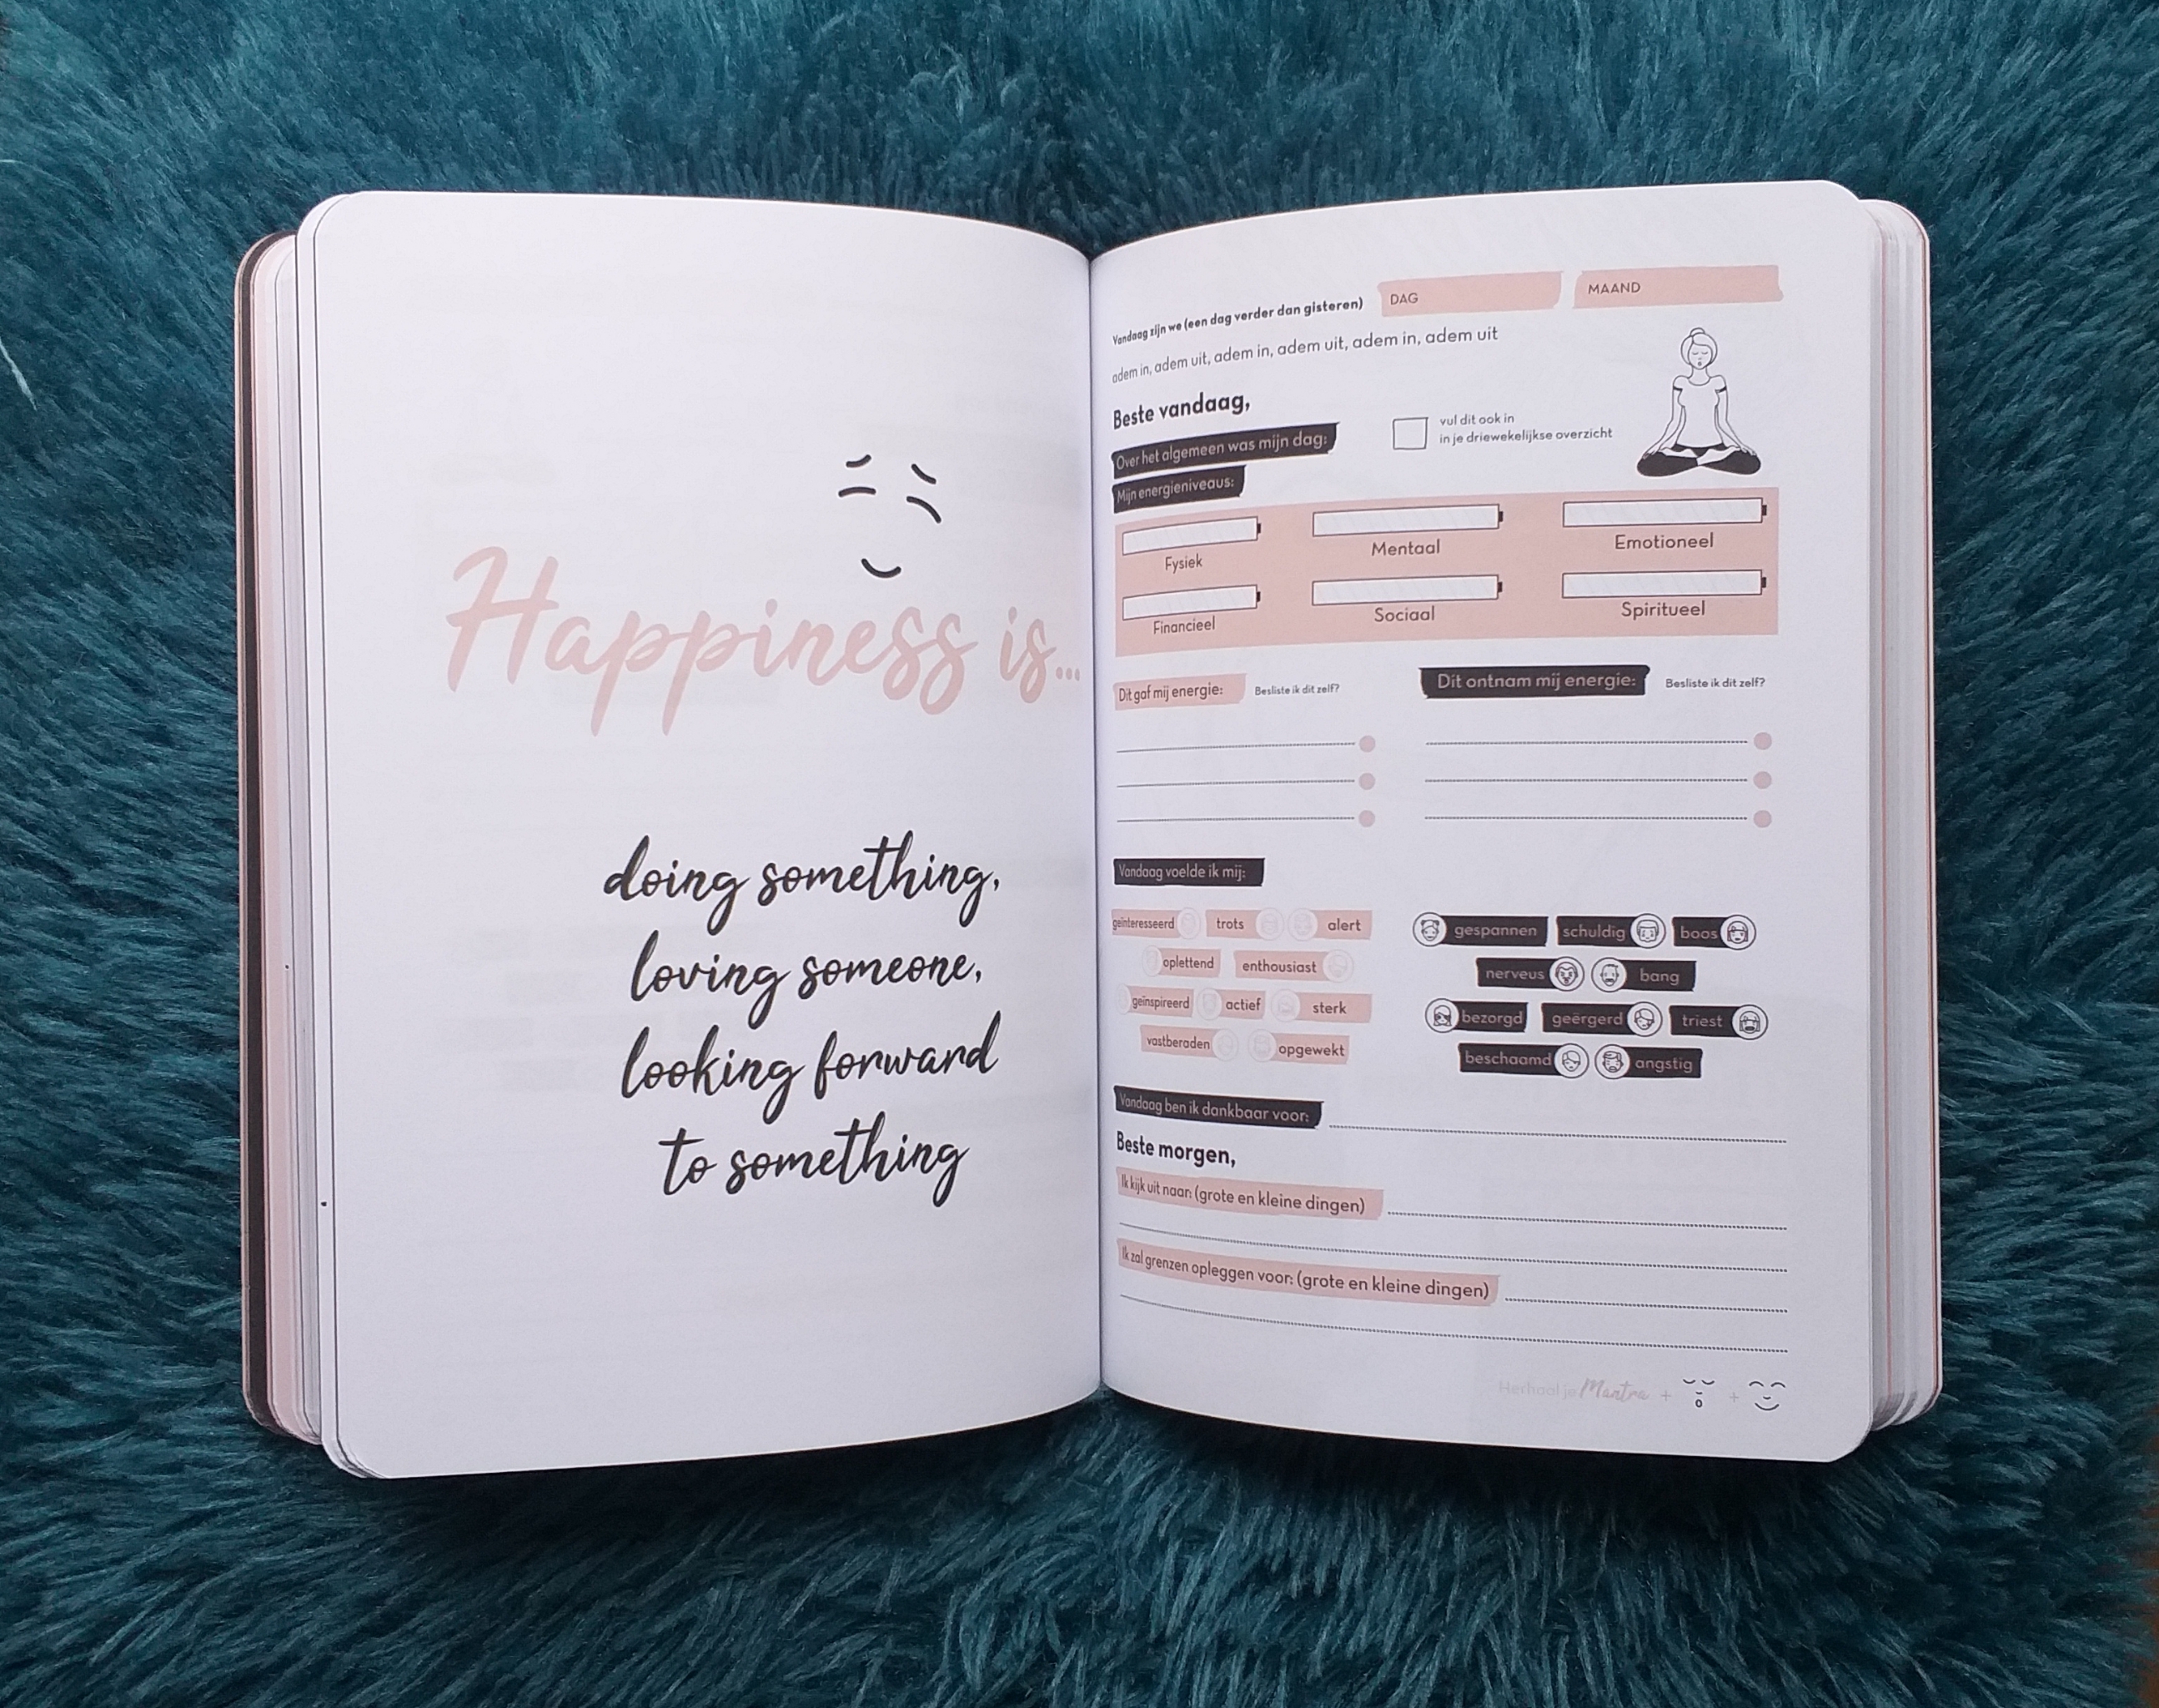 Happiness is...
doing something,
loving someone,
looking forward
to something
Vandaag zijn we (een dag verder dan gisteren) DAG MAAND
adem in, adem uit, adem in, adem uit, adem in, adem uit
Beste vandaag,
Over het algemeen was mijn dag:
vul dit ook in
in je driewekelijkse overzicht
Mijn energieniveaus:
Fysiek Mentaal Emotioneel
Financieel Sociaal Spiritueel
Dit gaf mij energie: Besliste ik dit zelf? Dit ontnam mij energie: Besliste ik dit zelf?
Vandaag voelde ik mij:
geïnteresseerd trots alert
oplettend enthousiast
geïnspireerd actief sterk
vastberaden opgewekt
gespannen schuldig boos
nerveus bang
bezorgd geërgerd triest
beschaamd angstig
Vandaag ben ik dankbaar voor:
Beste morgen,
Ik kijk uit naar: (grote en kleine dingen)
Ik zal grenzen opleggen voor: (grote en kleine dingen)
Herhaal je Mantra + +